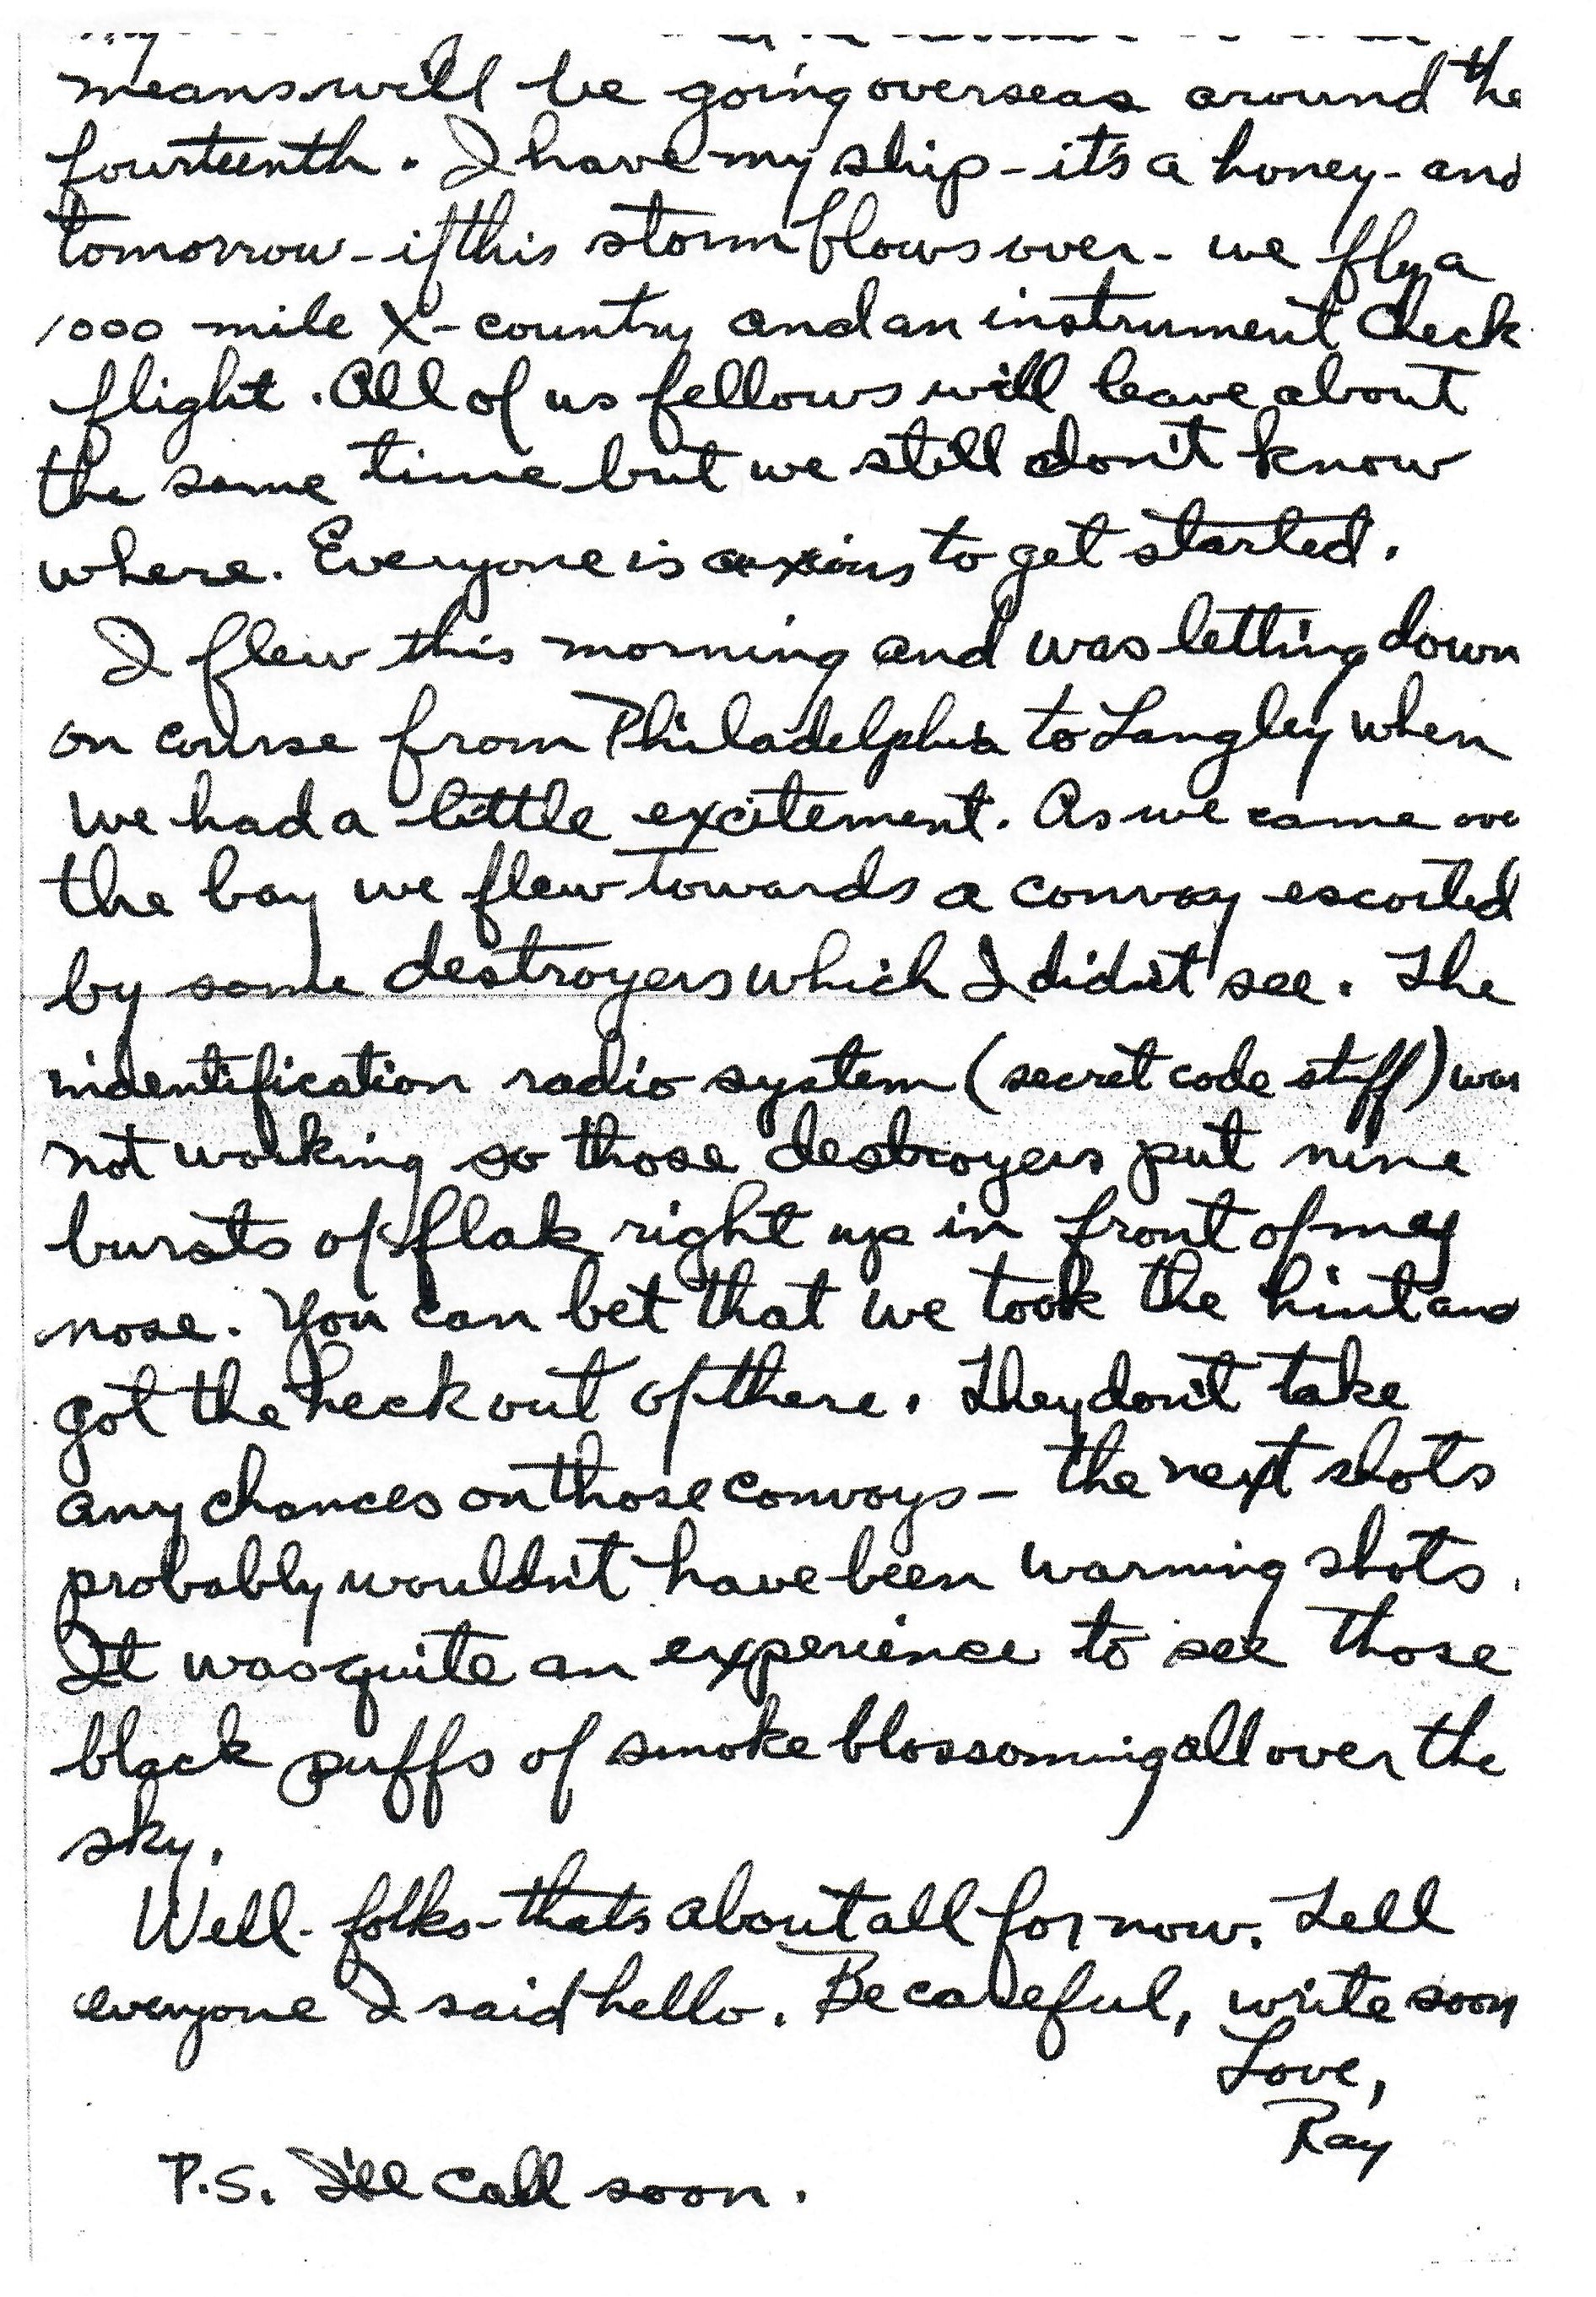 means will be going overseas around the
fourteenth. I have my ship - it's a honey - and
tomorrow - if this storm blows over - we fly a
1000 mile X-country and an instrument check
flight. All of us fellows will leave about
the same time but we still don't know
where. Everyone is anxious to get started.
I flew this morning and was letting down
on course from Philadelphia to Langley when
we had a little excitement. As we came ove
the bay we flew towards a convoy escorted
by some destroyers which I didn't see. The
indentification radio system (secret code stuff) was
not working so those destroyers put nine
bursts of flak right up in front of my
nose. You can bet that we took the hint and
got the heck out of there. They don't take
any chances on those convoys - the next shots
probably wouldn't have been warning shots.
It was quite an experience to see those
black puffs of smoke blossoming all over the
sky.
Well - folks - that's about all for now. Tell
everyone I said hello. Be careful, write soon
Love,
Ray
P.S. I'll call soon.